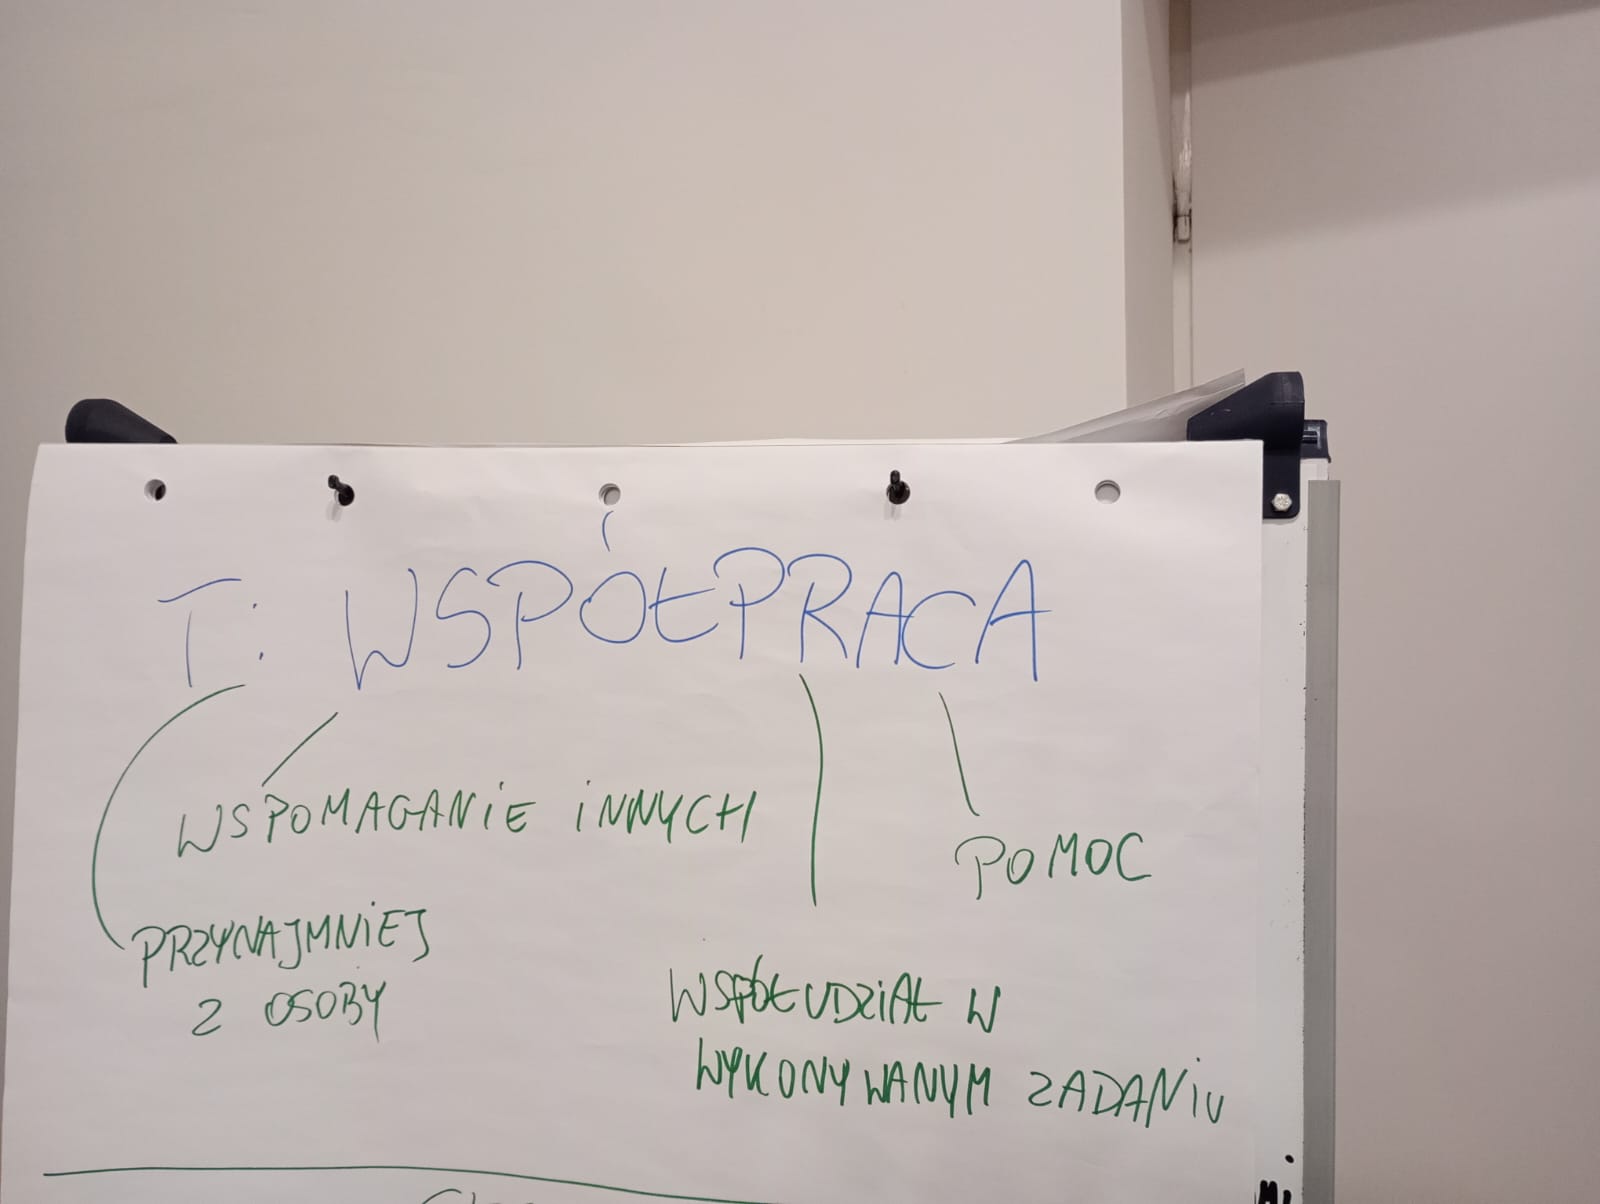 T: WSPÓŁPRACA
WSPOMAGANIE INNYCH
POMOC
PRZYNAJMNIEJ
2 OSOBY
WSPÓŁUDZIAŁ W
WYKONYWANYM ZADANIU